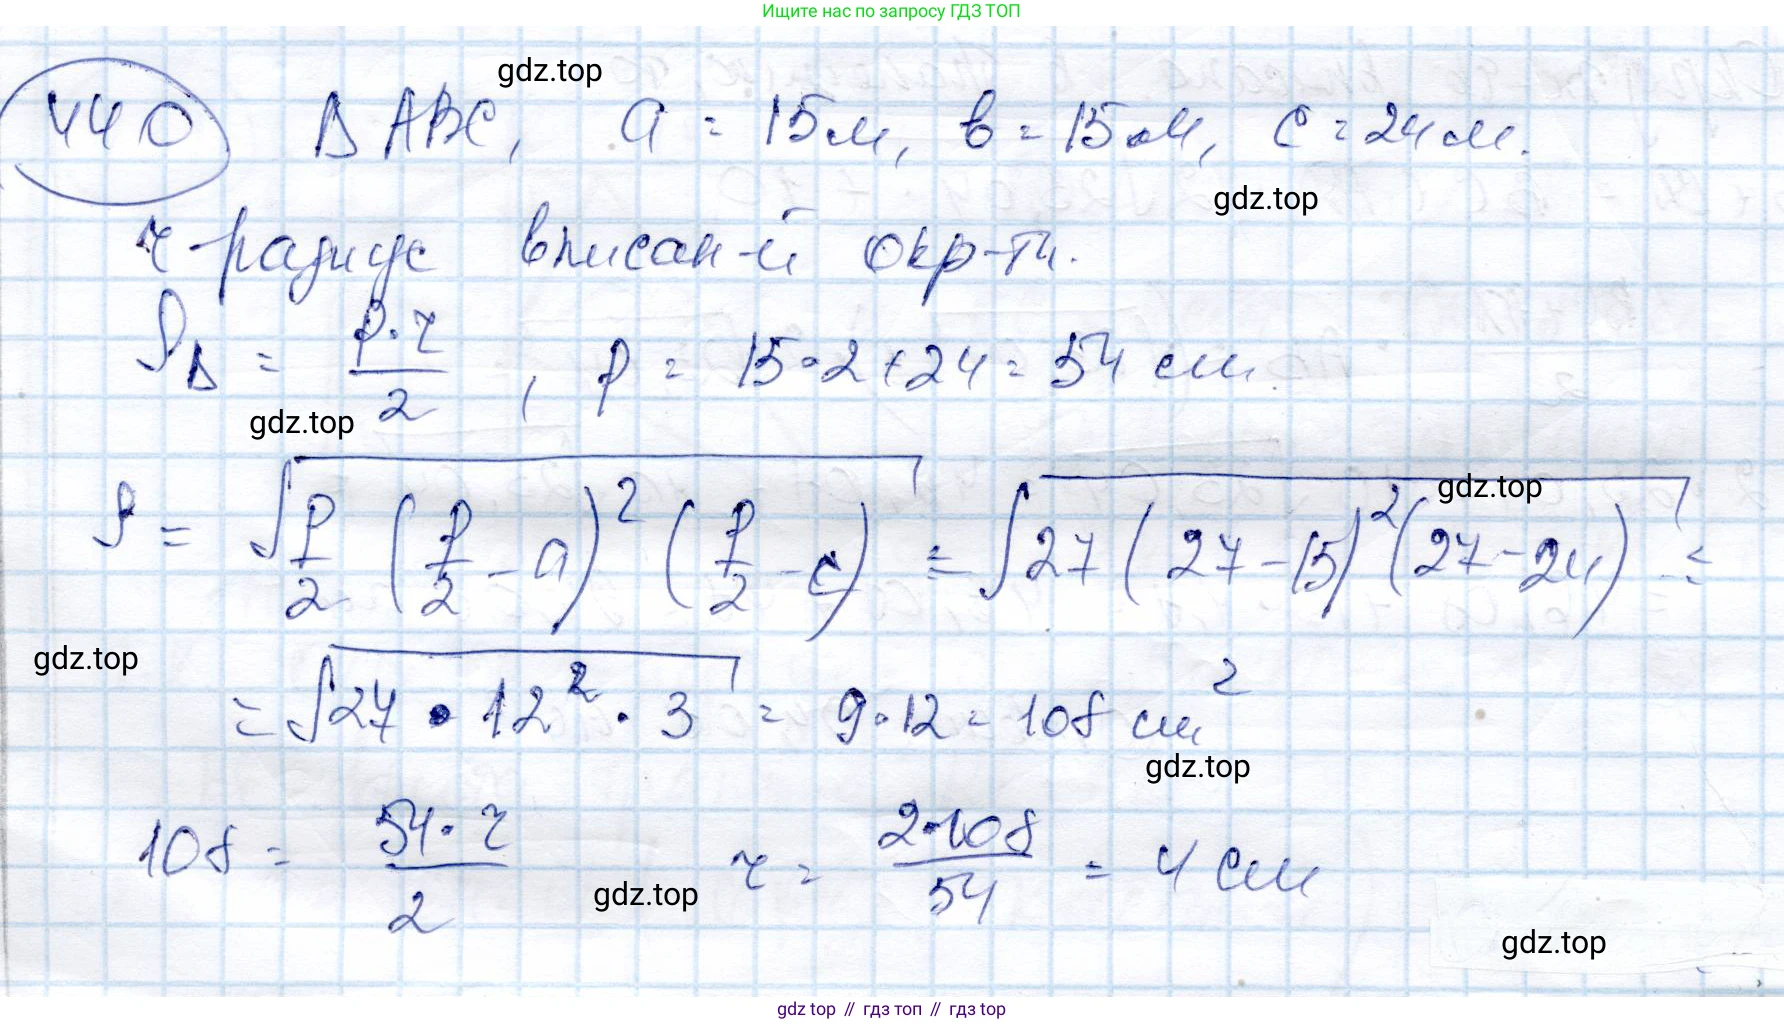 Ищите нас по запросу ГДЗ ТОП
gdz.top
440 Δ ABC, a = 15 м, в = 15 см, c = 24 см.
gdz.top
r - радиус вписан-й окр-ти.
S_Δ = \frac{P·r}{2}, P = 15·2+24 = 54 см.
gdz.top
S = \sqrt{\frac{P}{2} (\frac{P}{2} - a)^2 (\frac{P}{2} - c)} = \sqrt{27 (27 - 15)^2 (27 - 24)} =
gdz.top
gdz.top
= \sqrt{27 · 12^2 · 3} = 9·12 = 108 см^2
gdz.top
108 = \frac{54·r}{2} r = \frac{2·108}{54} = 4 см
gdz.top
gdz.top
gdz top // гдз топ // gdz top